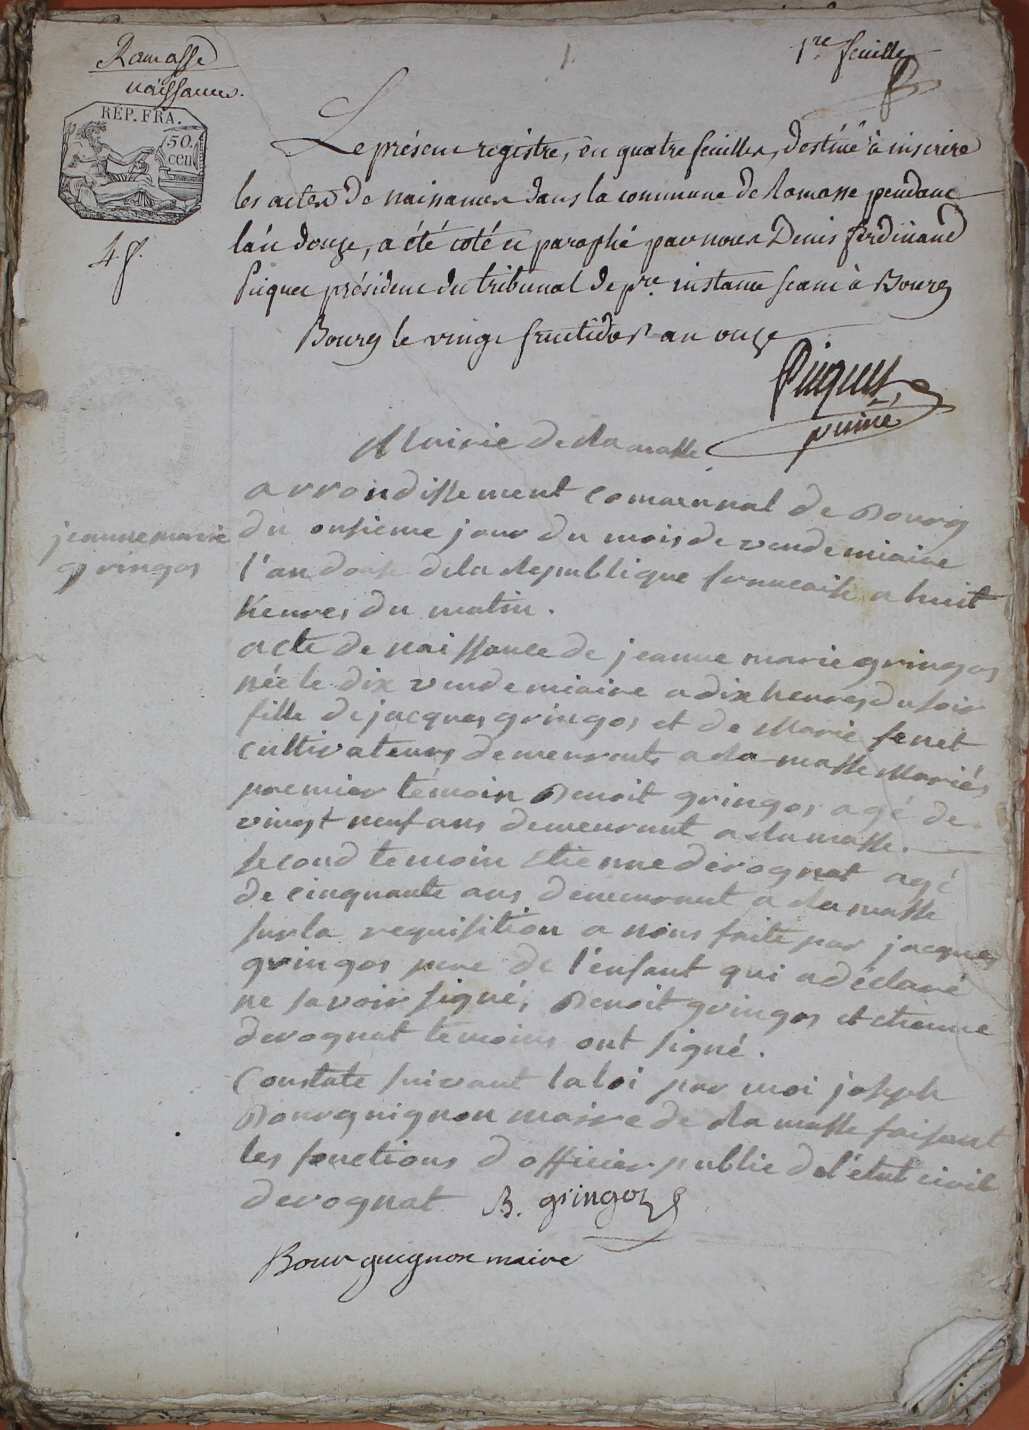 Ramasse
naissances.
1
1re feuille
RÉP. FRA.
50.
cen
4 f.
Le présent registre, en quatre feuilles, destiné à inscrire
les actes de naissances dans la commune de Ramasse pendant
l'an douze, a été coté et paraphé par nous Denis ferdinand
Piquet président du tribunal de pre. instance seant à Bourg
Bourg le vingt fructidor an onze
Piquet
puiné
Mairie de Ramasse
arrondissement comunnal de Bourg
du onsieme jour du mois de vendemiaire
l'an douse de la Republique francaise a huit
heures du matin.
jeanne marie
gringos
acte de naissance de jeanne marie gringos
née le dix vendemiaire a dix heures du soir
fille de jacques gringos et de Marie fenet
cultivateurs demeurants a Ramasse Mariés
premier témoin Benoit gringos agé de
vingt neuf ans demeurant a Ramasse.
second temoin Etienne dérognat agé
de cinquante ans demeurant a Ramasse
sur la requisition a nous faite par jacques
gringos pere de l'enfant qui a déclaré
ne savoir signé, Benoit gringos et etienne
derognat temoins ont signé.
Constate suivant la loi par moi joseph
Bourguignon maire de Ramasse faisant
les fonctions d officier public de l'état civil
derognat B. gringoz
Bourguignon maire